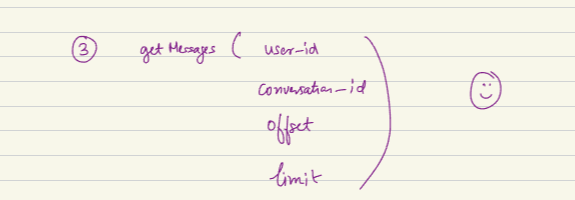 ③ getMessages ( user-id
conversation-id
offset
limit )